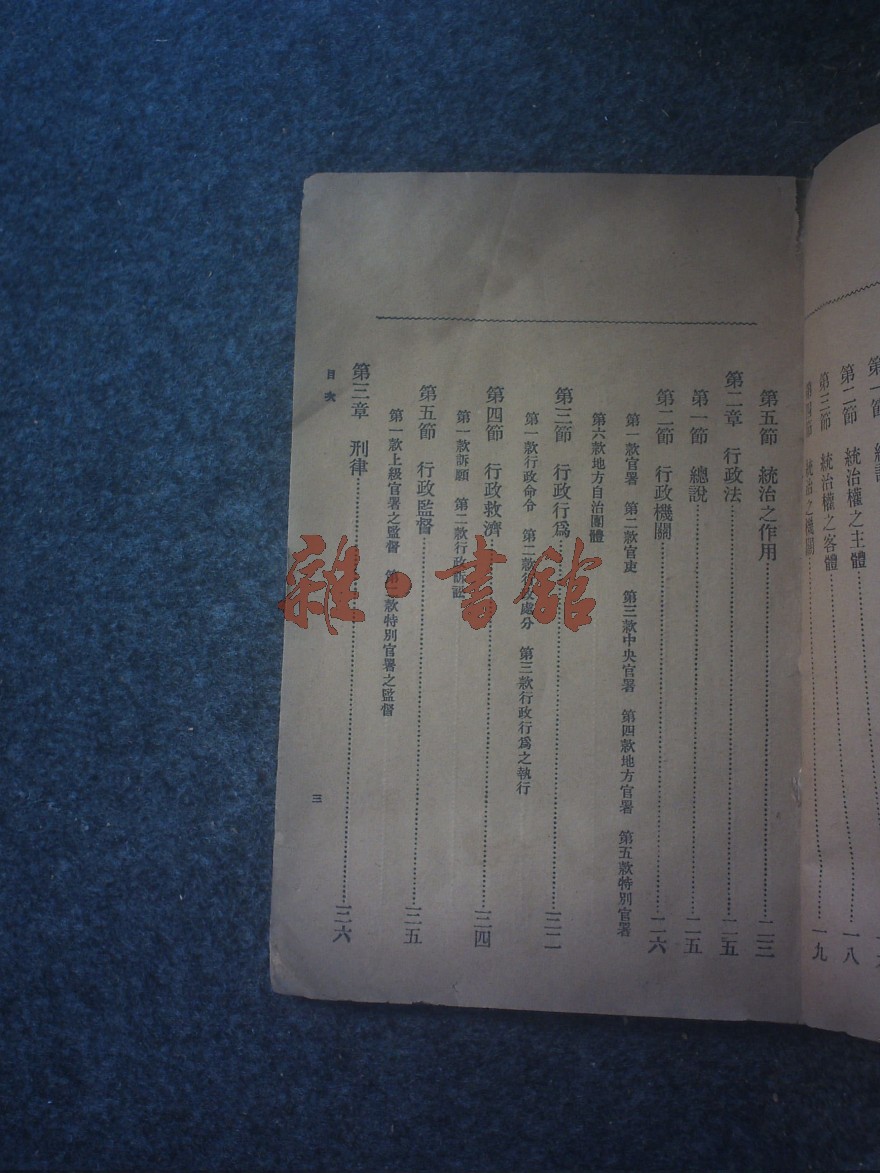 第二節　統治權之主體　一八
第三節　統治權之客體　一九
第五節　統治之作用　二三
第二章　行政法　二五
第一節　總說　二五
第二節　行政機關　二六
第一款官署　第二款官吏　第三款中央官署　第四款地方官署　第五款特別官署
第六款地方自治團體
第三節　行政行爲　三二
第一款行政命令　第二款行政處分　第三款行政行爲之執行
第四節　行政救濟　三四
第一款訴願　第二款行政訴訟
第五節　行政監督　三五
第一款上級官署之監督　第二款特別官署之監督
第三章　刑律　三六
目次
三
雜·書館